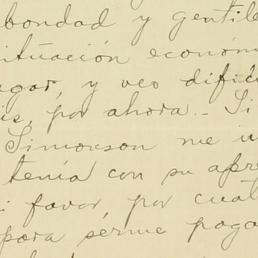 bondad y gentile
situación económ
agar, y veo difíci
us, por ahora.. Si
Simonson me u
tenía con su apre
i favor, por cual
para serme paga